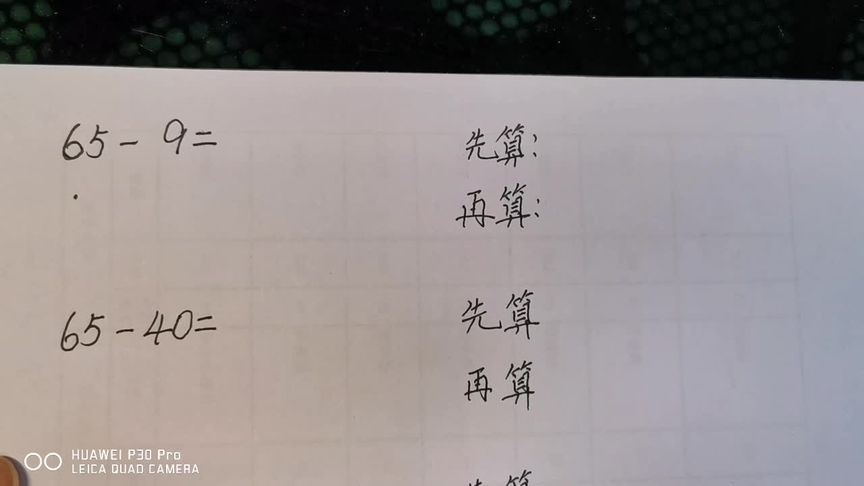 65 - 9 =
先算:
再算:
65 - 40 =
先算
再算
HUAWEI P30 Pro
LEICA QUAD CAMERA